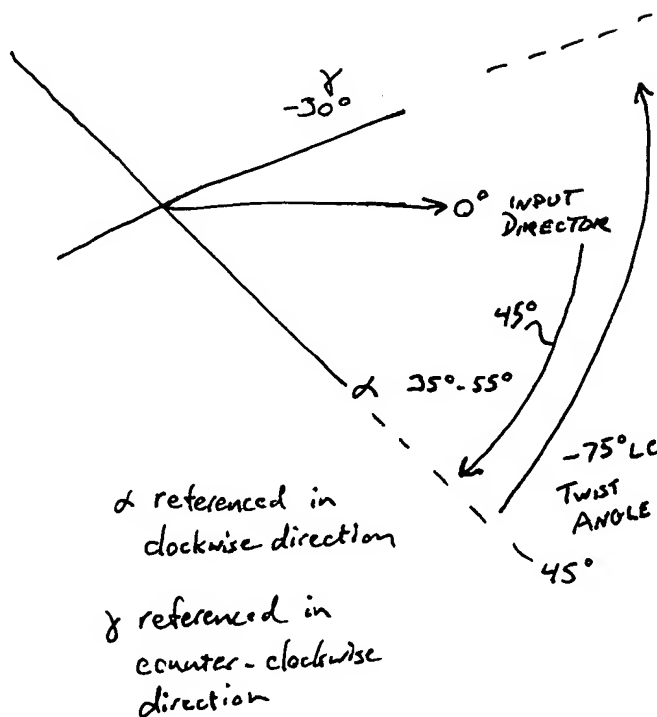 γ
-30°
0° INPUT
DIRECTOR
45°
α 35°-55°
-75° LC
TWIST
ANGLE
45°
α referenced in
clockwise direction
γ referenced in
counter-clockwise
direction